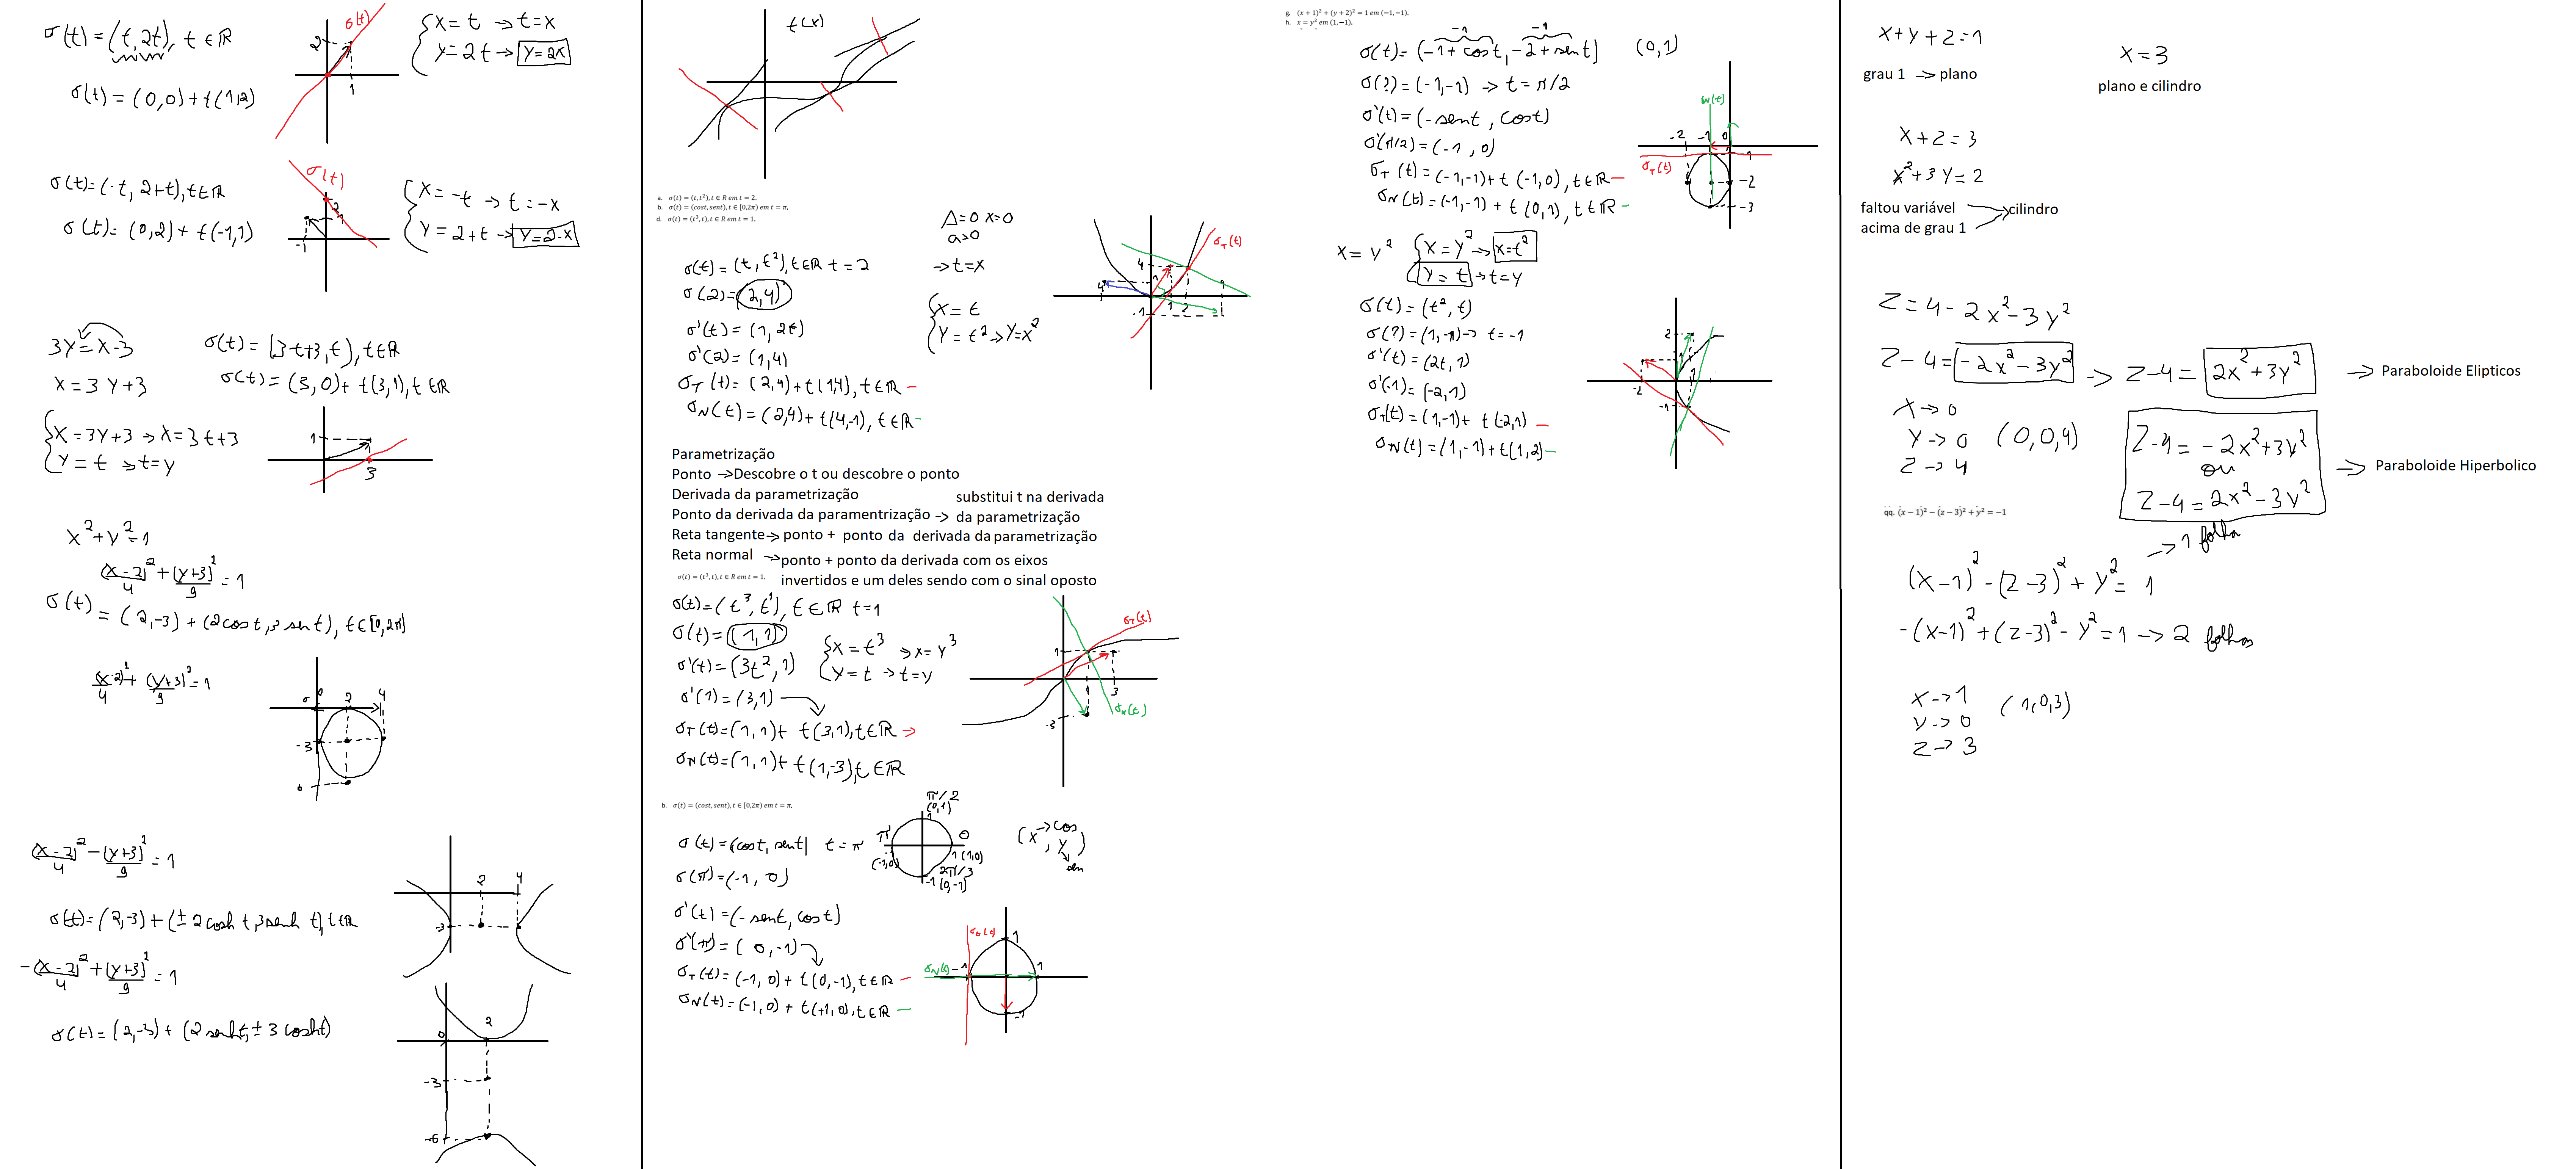 σ(t) = (t, 2t), t ∈ ℝ
σ(t) = (0,0) + t(1,2)
σ(t)
2
1
{ x = t → t = x
y = 2t → y = 2x
σ(t) = (-t, 2+t), t ∈ ℝ
σ(t) = (0,2) + t(-1,1)
σ(t)
2
1
-1
{ x = -t → t = -x
y = 2+t → y = 2-x
3y = x-3
x = 3y+3
σ(t) = (3t+3, t), t ∈ ℝ
σ(t) = (3,0) + t(3,1), t ∈ ℝ
{ x = 3y+3 → x = 3t+3
y = t → t = y
1
3
x² + y² = 1
(x-2)²/4 + (y+3)²/9 = 1
σ(t) = (2,-3) + (2cos t, 3 sen t), t ∈ [0,2π]
(x-2)²/4 + (y+3)²/9 = 1
0 2 4
-3
(x-2)²/4 - (y+3)²/9 = 1
σ(t) = (2,-3) + (± 2 cosh t, 3 senh t), t ∈ ℝ
2 4
-3
-(x-2)²/4 + (y+3)²/9 = 1
σ(t) = (2,-3) + (2 senh t, ± 3 cosh t)
0 2
-3
-6
t(x)
a. σ(t) = (t, t²), t ∈ R em t = 2.
b. σ(t) = (cost, sent), t ∈ [0,2π) em t = π.
d. σ(t) = (t³, t), t ∈ R em t = 1.
σ(t) = (t, t²), t ∈ ℝ t = 2
σ(2) = (2,4)
σ'(t) = (1, 2t)
σ'(2) = (1,4)
σT(t) = (2,4) + t(1,4), t ∈ ℝ -
σN(t) = (2,4) + t(4,-1), t ∈ ℝ -
Δ=0 x=0
a>0
→ t = x
{ x = t
y = t² → y = x²
σT(t)
4
1 2
-1
Parametrização
Ponto → Descobre o t ou descobre o ponto
Derivada da parametrização
Ponto da derivada da paramentrização → substitui t na derivada
da parametrização
Reta tangente → ponto + ponto da derivada da parametrização
Reta normal → ponto + ponto da derivada com os eixos
invertidos e um deles sendo com o sinal oposto
σ(t) = (t³, t), t ∈ R em t = 1.
σ(t) = (t³, t¹), t ∈ ℝ t = 1
σ(t) = (1,1)
σ'(t) = (3t², 1)
σ'(1) = (3,1)
σT(t) = (1,1) + t(3,1), t ∈ ℝ →
σN(t) = (1,1) + t(1,-3), t ∈ ℝ
{ x = t³ → x = y³
y = t → t = y
σT(t)
1
1 3
-3
σN(t)
b. σ(t) = (cost, sent), t ∈ [0,2π) em t = π.
σ(t) = (cost, sent) t = π
σ(π) = (-1, 0)
σ'(t) = (-sent, cost)
σ'(π) = (0,-1)
σT(t) = (-1,0) + t(0,-1), t ∈ ℝ -
σN(t) = (-1,0) + t(+1,0), t ∈ ℝ -
π/2
(0,1)
1
π
(-1,0)
0
1 (1,0)
2π/3
-1 (0,-1)
(x → cos, y → sen)
σT(t)
1
σN(t) -1
1
-1
g. (x + 1)² + (y + 2)² = 1 em (-1,-1).
h. x = y² em (1,-1).
-1 -1
σ(t) = (-1+cost, -2+sent) (0,1)
σ(?) = (-1,-1) → t = π/2
σ'(t) = (-sent, cost)
σ'(π/2) = (-1, 0)
σT(t) = (-1,-1) + t(-1,0), t ∈ ℝ -
σN(t) = (-1,-1) + t(0,1), t ∈ ℝ -
σN(t)
-2 -1 0
-1
σT(t)
-2
-3
x = y² { x = y² → x = t²
y = t → t = y
σ(t) = (t², t)
σ(?) = (1,-1) → t = -1
σ'(t) = (2t, 1)
σ'(-1) = (-2,1)
σT(t) = (1,-1) + t(-2,1) -
σN(t) = (1,-1) + t(1,2) -
2
1
-2
-1
x+y+z=1
grau 1 → plano
x = 3
plano e cilindro
x+z = 3
x²+3y = 2
faltou variável → cilindro
acima de grau 1
z = 4 - 2x² - 3y²
z-4 = -2x² - 3y² → z-4 = 2x² + 3y² → Paraboloide Elipticos
x → 0
y → 0 (0,0,4)
z → 4
z-4 = -2x² + 3y²
ou
z-4 = 2x² - 3y²
→ Paraboloide Hiperbolico
qq. (x - 1)² - (z - 3)² + y² = -1
→ 1 folha
(x-1)² - (z-3)² + y² = 1
-(x-1)² + (z-3)² - y² = 1 → 2 folhas
x → 1
y → 0 (1,0,3)
z → 3